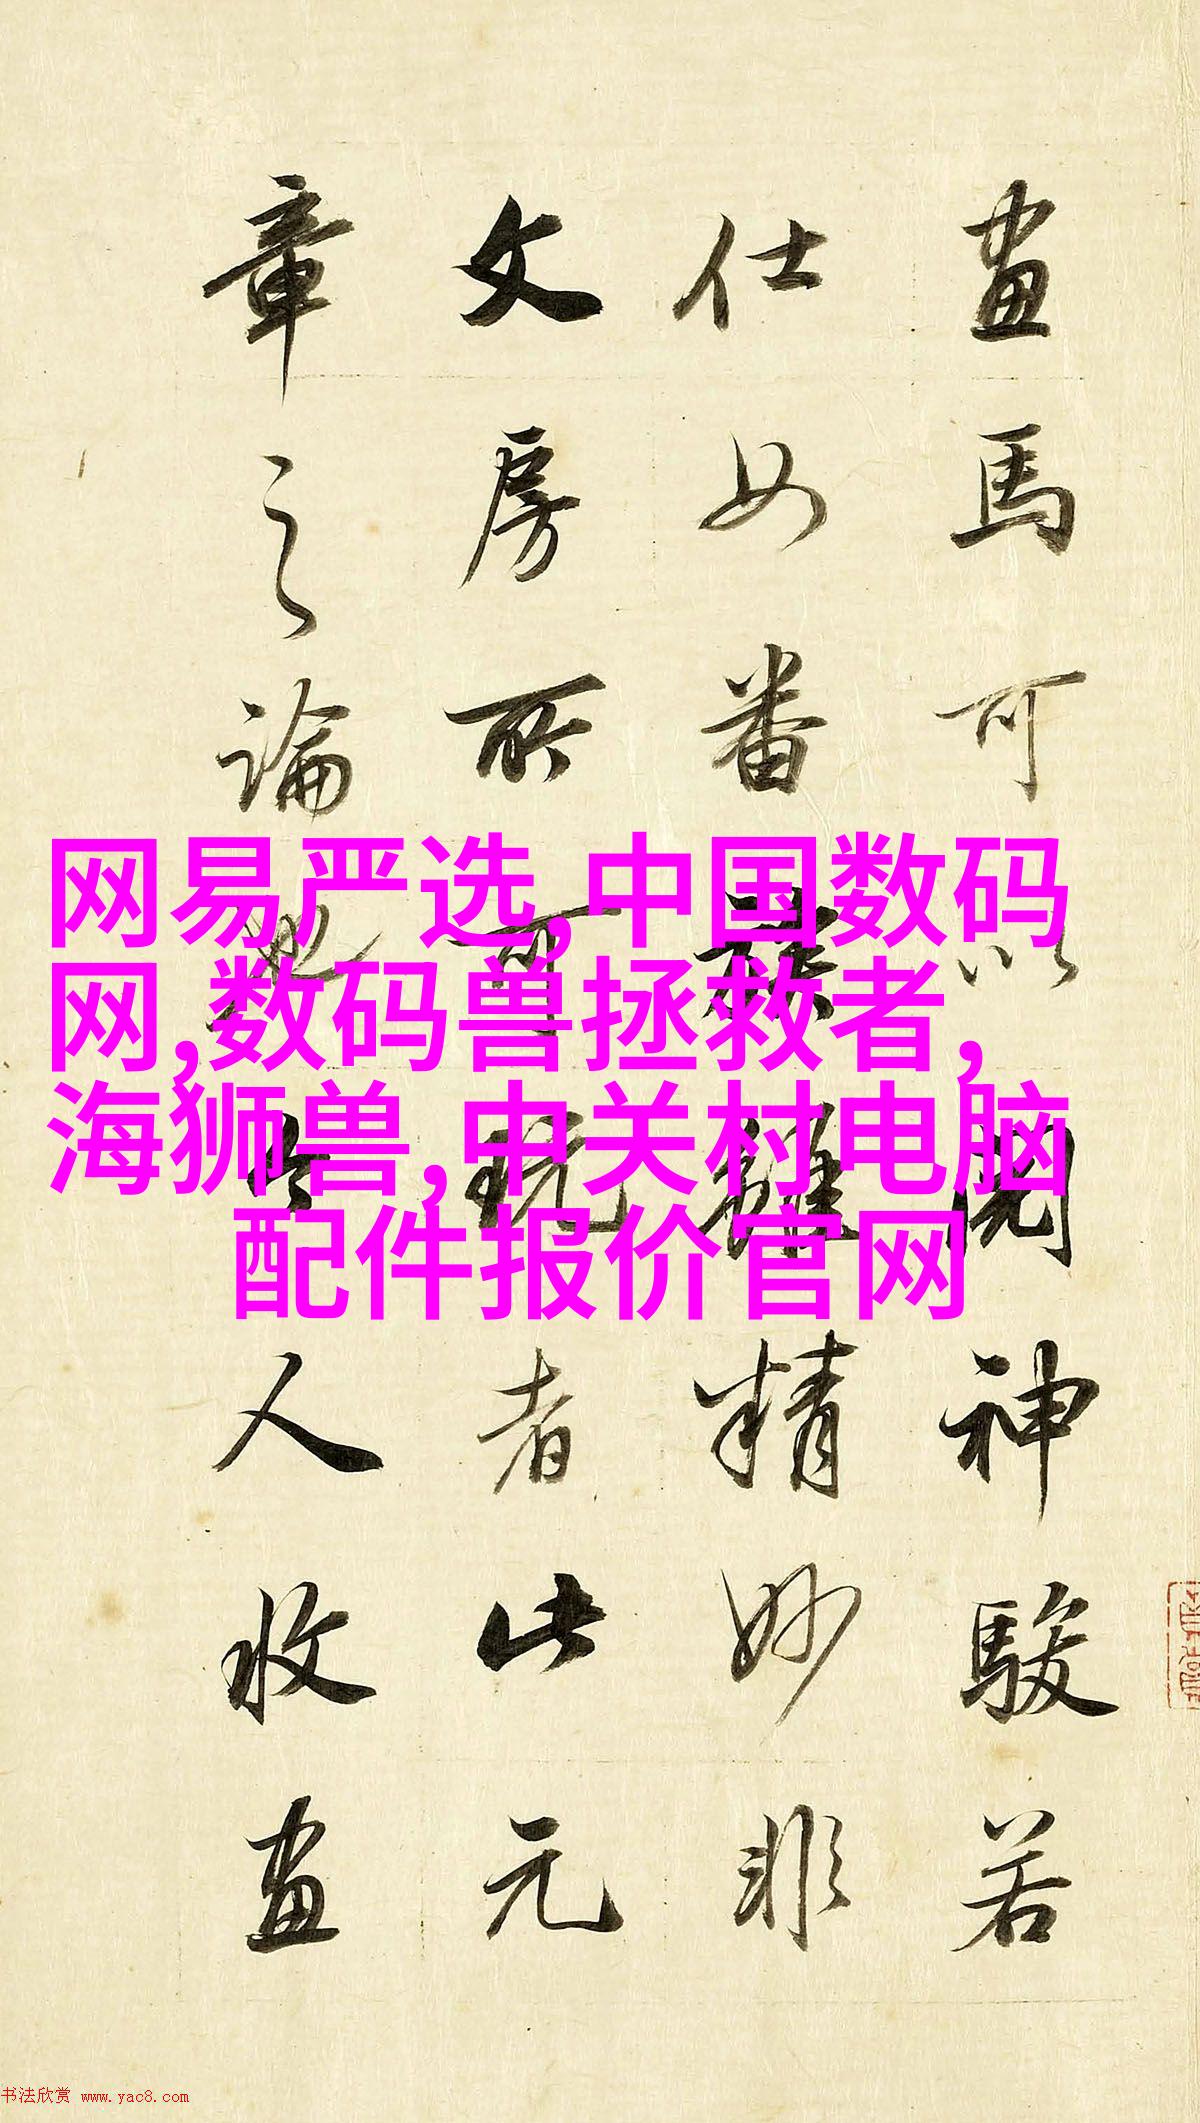 畫馬可以閱神駿若
仕女番族雖精妙非
文房所可玩者此元
章之論也今人收畫
网易严选,中国数码
网,数码兽拯救者,
海狮兽,中关村电脑
配件报价官网
书法欣赏 www.yac8.com